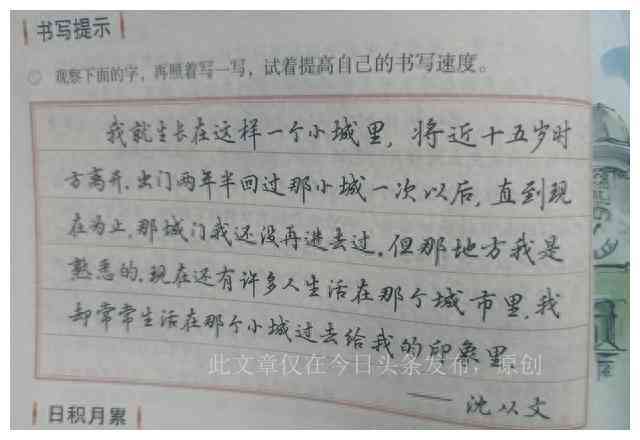 书写提示
观察下面的字，再照着写一写，试着提高自己的书写速度。
我就生长在这样一个小城里，将近十五岁时
方离开。出门两年半回过那小城一次以后，直到现
在为止，那城门我还没再进去过。但那地方我是
熟悉的。现在还有许多人生活在那个城市里，我
却常常生活在那个小城过去给我的印象里。
此文章仅在今日头条发布，原创
——沈从文
日积月累